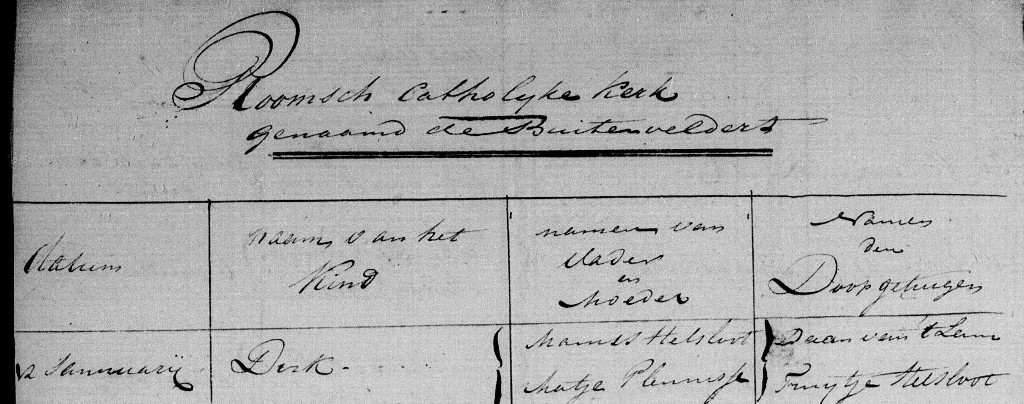 Roomsch Catholyke Kerk
genaamd de Buitenvelders
datum
naam van het
Kind
namen van
vader
en
Moeder
Namen
der
Doopgetuigen
12 Januarij
Dirk.
Helsloot
Matje
Daan van't
Truytje Helsloot